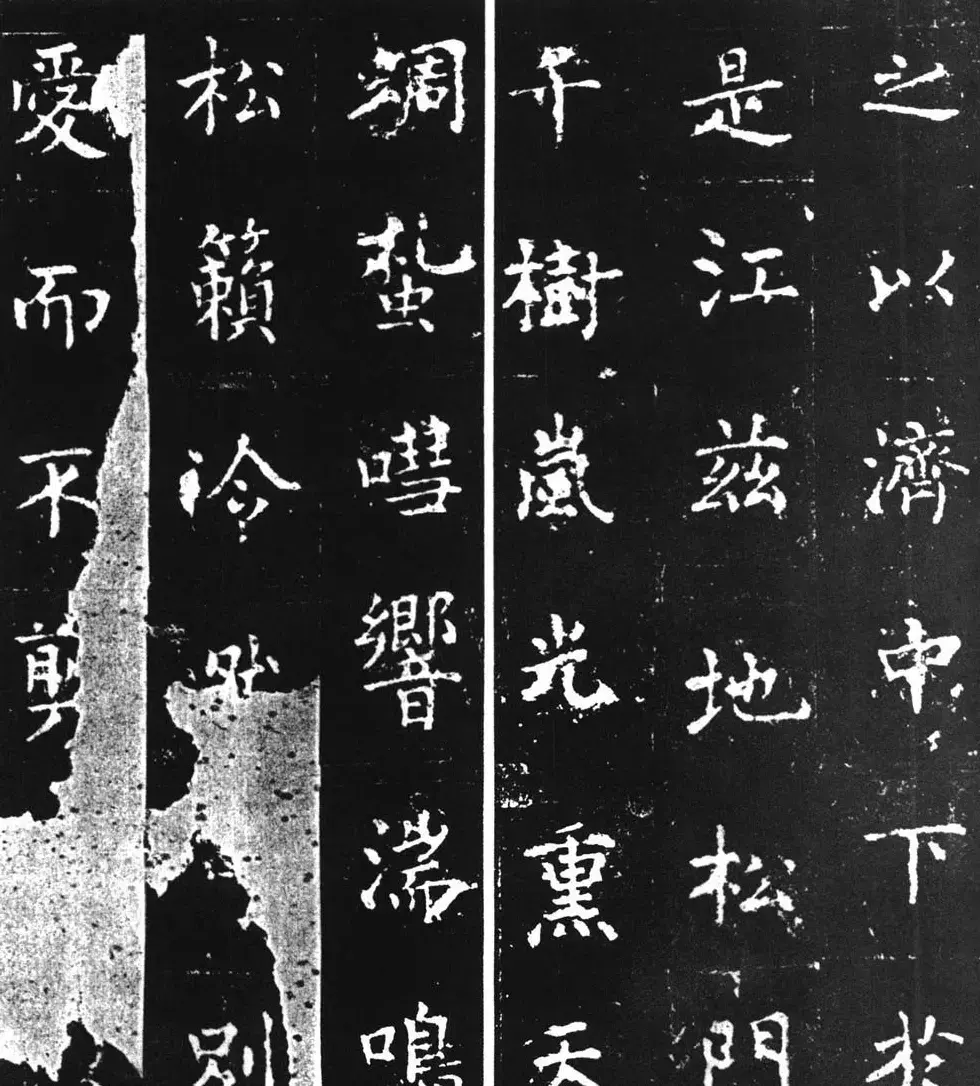 之以濟中下於
是江茲地松門
千樹嵐光熏天
蜩蚻嘒響湍鳴
松籟泠然別
愛而不剪